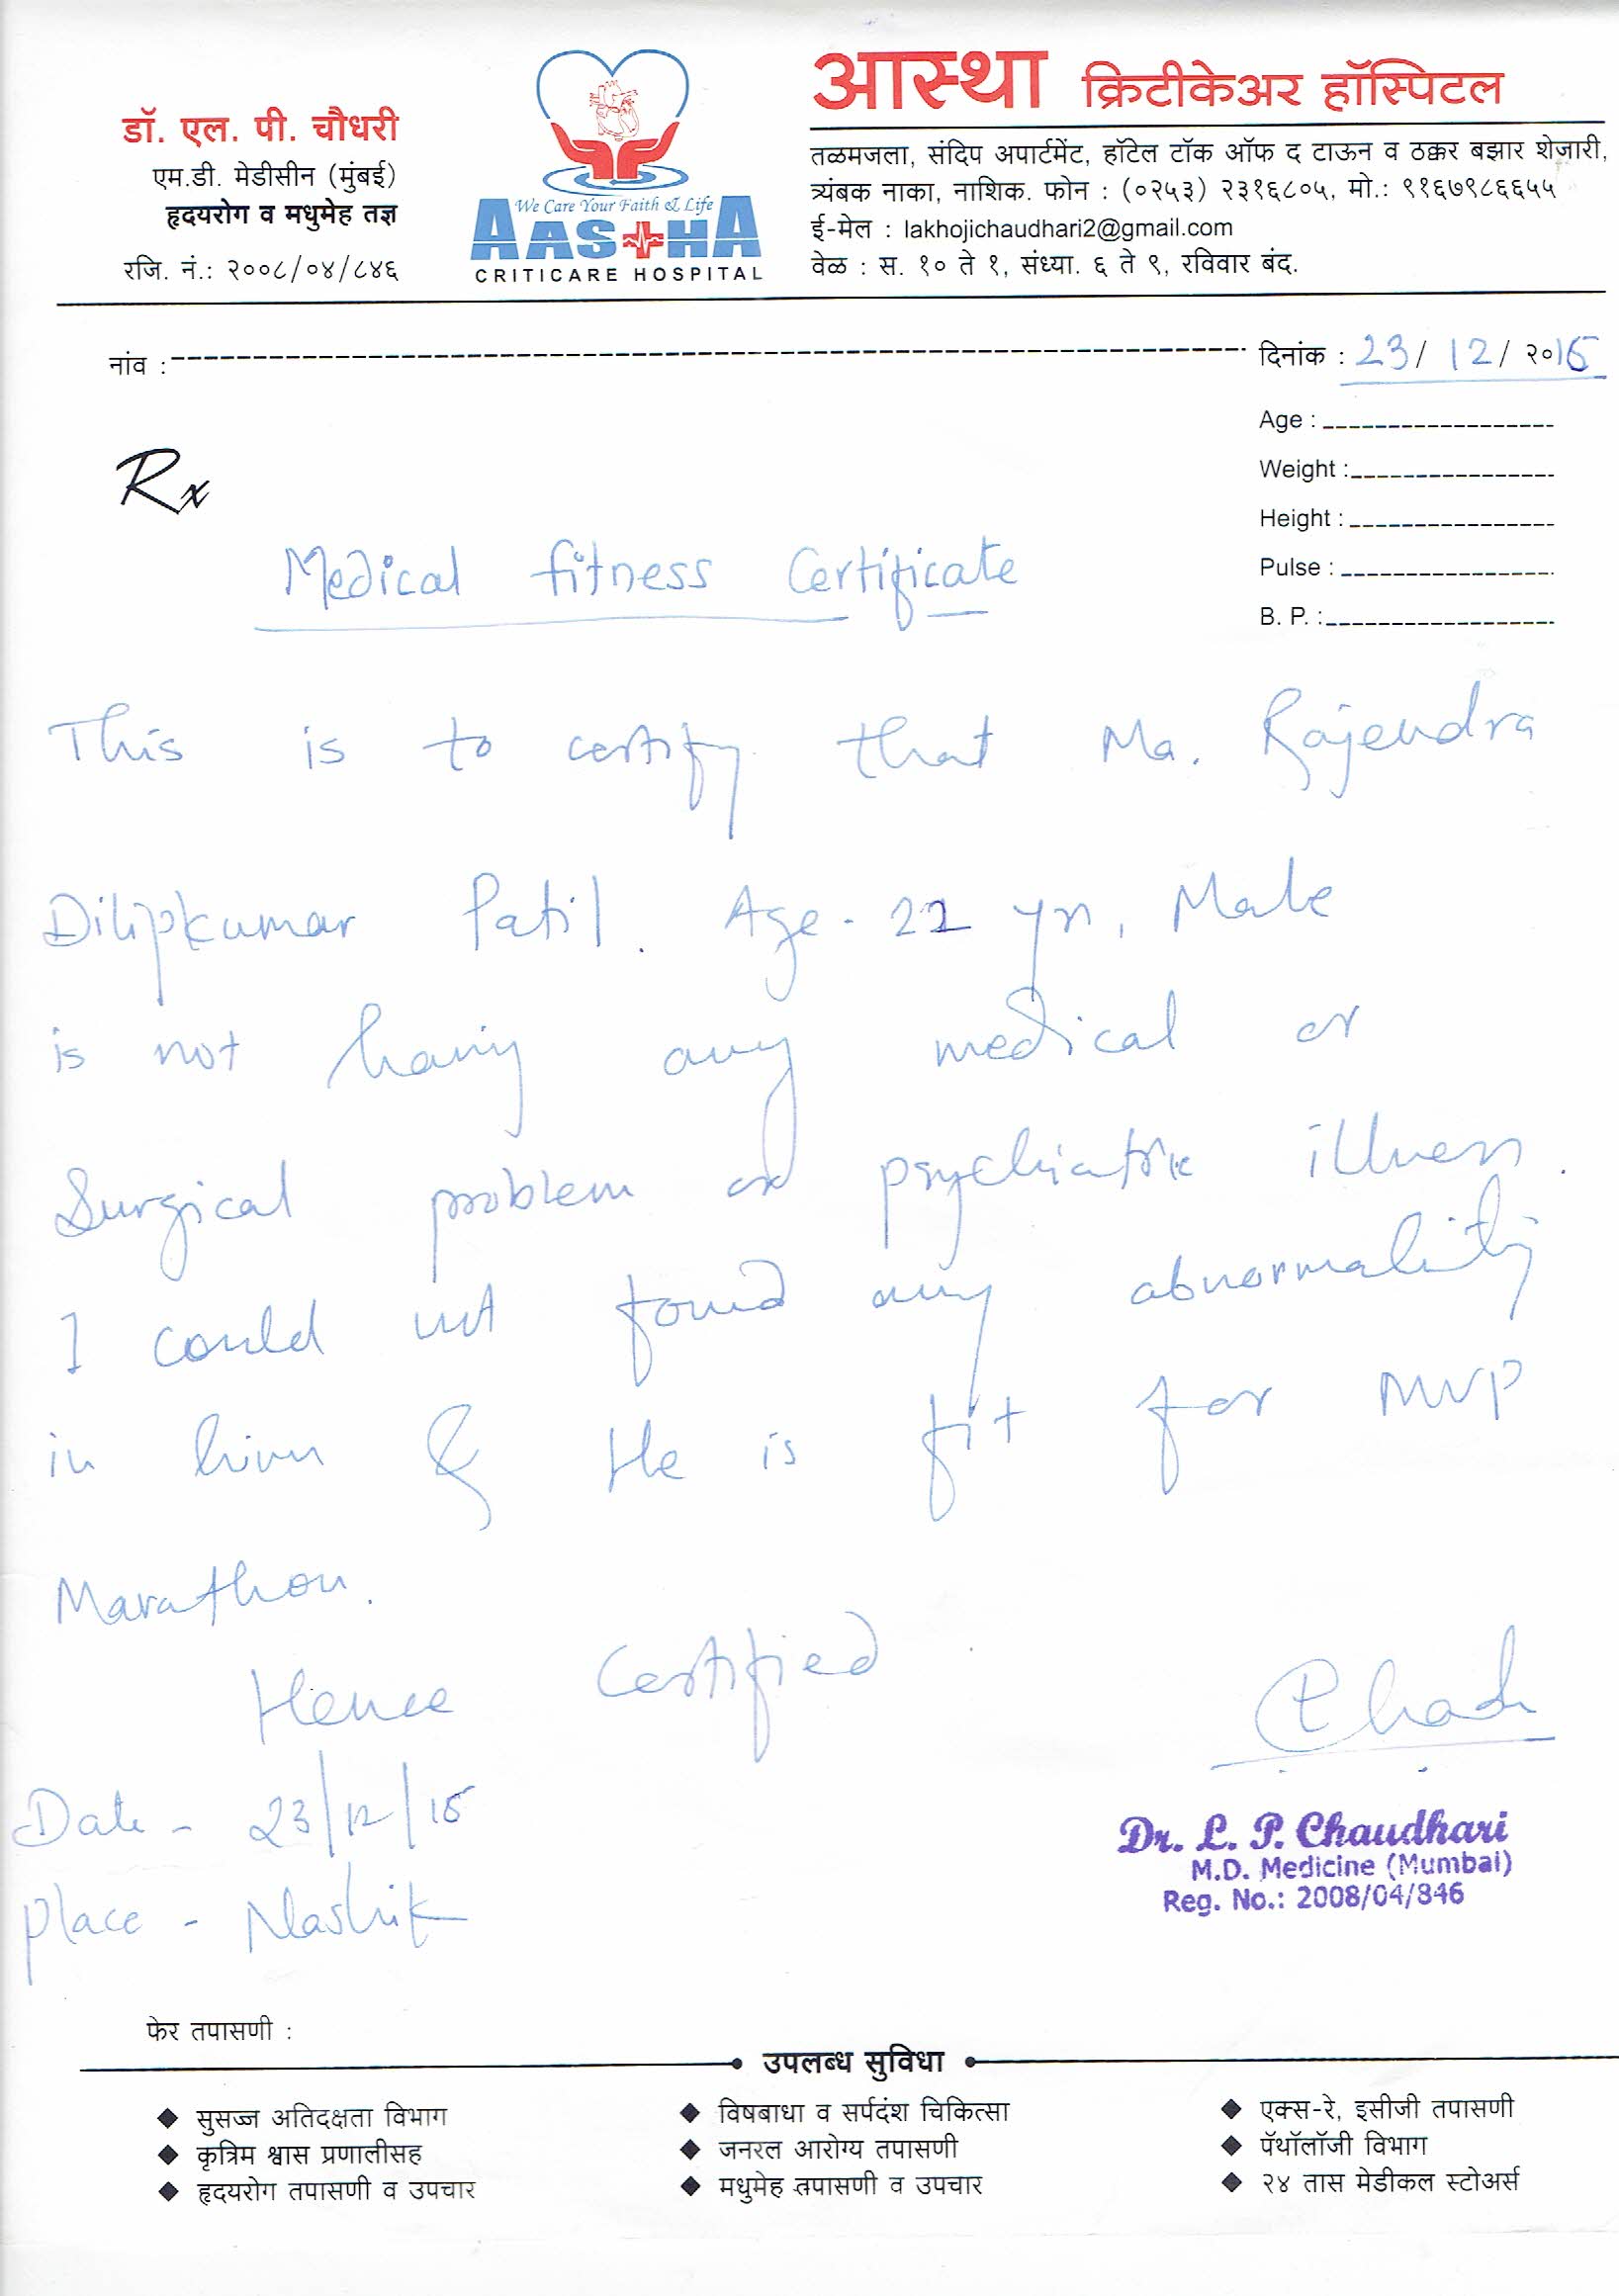 डॉ. एल. पी. चौधरी
एम.डी. मेडीसीन (मुंबई)
हृदयरोग व मधुमेह तज्ञ
रजि. नं.: २००८/०४/८४६
We Care Your Faith & Life
AASTHA
CRITICARE HOSPITAL
आस्था क्रिटीकेअर हॉस्पिटल
तळमजला, संदिप अपार्टमेंट, हॉटेल टॉक ऑफ द टाऊन व ठक्कर बझार शेजारी,
त्र्यंबक नाका, नाशिक. फोन : (०२५३) २३१६८०५, मो.: ९१६७९८६६५५
ई-मेल : lakhojichaudhari2@gmail.com
वेळ : स. १० ते १, संध्या. ६ ते ९, रविवार बंद.
नांव :
दिनांक : 23/ 12/ २०15
Age :
Weight :
Height :
Pulse :
B. P. :
Rx
Medical fitness Certificate
This is to certify that Mr. Rajendra
Dilipkumar Patil. Age - 22 yr, Male
is not having any medical or
Surgical problem or psychiatric illness.
I could not found any abnormality
in him & He is fit for MVP
Marathon.
Hence Certified
Date - 23/12/15
Place - Nashik
Dr. L. P. Chaudhari
M.D. Medicine (Mumbai)
Reg. No.: 2008/04/846
फेर तपासणी :
उपलब्ध सुविधा
सुसज्ज अतिदक्षता विभाग
कृत्रिम श्वास प्रणालीसह
हृदयरोग तपासणी व उपचार
विषबाधा व सर्पदंश चिकित्सा
जनरल आरोग्य तपासणी
मधुमेह तपासणी व उपचार
एक्स-रे, इसीजी तपासणी
पॅथॉलॉजी विभाग
२४ तास मेडीकल स्टोअर्स